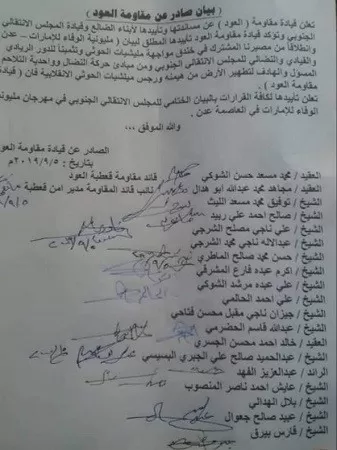 ( بيان صادر عن مقاومة العود )
تعلن قيادة مقاومة ( العود ) عن مساندتها وتأييدها لأبناء الضالع وقيادة المجلس الانتقالي
الجنوبي وتؤكد قيادة مقاومة العود تأييدها المطلق لبيان ( مليونية الوفاء للإمارات – عدن
وانطلاقا من مصيرنا المشترك في خندق مواجهة ميليشيات الحوثي وتثمينا للدور الريادي
والقيادي والنضالي للمجلس الانتقالي الجنوبي ومن مبادئ حركة النضال وواحدية التلاحم
المسؤل والهدف لتطهير الأرض من هيمنه ورجس ميلشيات الحوثي الانقلابية فان ( قيادة
مقاومة العود ) .
تعلن تأييدها لكافة القرارات بالبيان الختامي للمجلس الانتقالي الجنوبي في مهرجان مليونية
الوفاء للإمارات في العاصمة عدن .
والله الموفق ،،،
الصادر عن قيادة مقاومة العود
بتاريخ : ٢٠١٩/٩/٥م
العقيد/ محمد مسعد حسن الشوكي قائد مقاومة قعطبة العود
العقيد / مجاهد محمد عبدالله ابو هدال نائب قائد المقاومة مدير امن قعطبة
الشيخ/ توفيق محمد مسعد الليث
الشيخ/ صالح احمد علي ربيد
الشيخ/ علي ناجي مصلح الشرجي
الشيخ/ عبدالاله ناجي محمد الشرجي
الشيخ/ حسن محمد صالح الماطري
الشيخ/ اكرم عبده فارع المشرقي
الشيخ/ علي عبده مرشد الشوكي
الشيخ/ علي احمد الحالمي
الشيخ/ جيزان ناجي مقبل محسن فتاحي
الشيخ/ عبدالله قاسم الحضرمي
العقيد/ خالد احمد محسن الجسري
الشيخ/ عبدالحميد صالح علي الجبري البميسي
الرائد / عبدالعزيز الفهد
الشيخ/ عايش احمد ناصر المنصوب
الشيخ/ بلال الهدالي
الشيخ/ عبيد صالح جعوال
الشيخ/ فارس بيرق